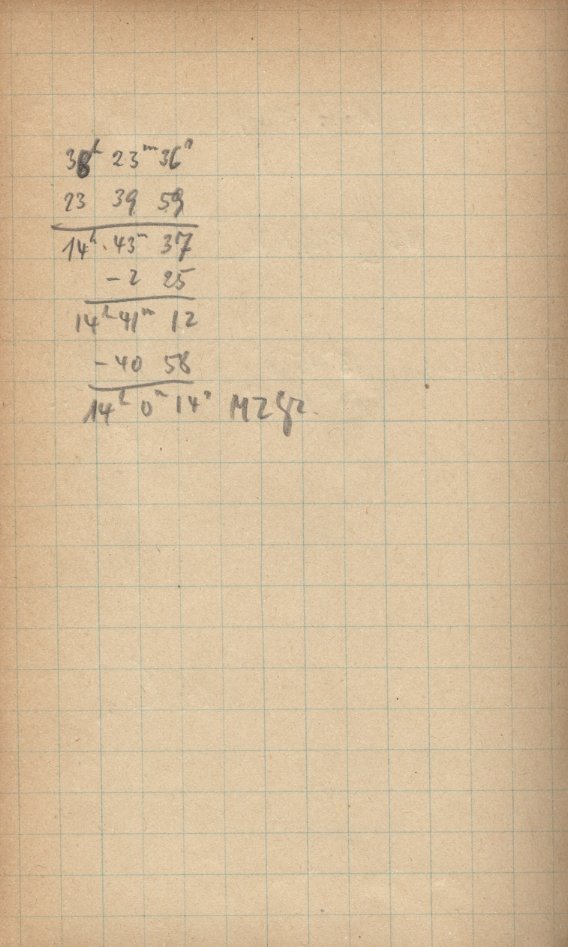 38ʰ 23ᵐ 36ˢ
23 39 59
14ʰ 43ᵐ 37
- 2 25
14ʰ 41ᵐ 12
- 40 58
14ʰ 0ᵐ 14ˢ